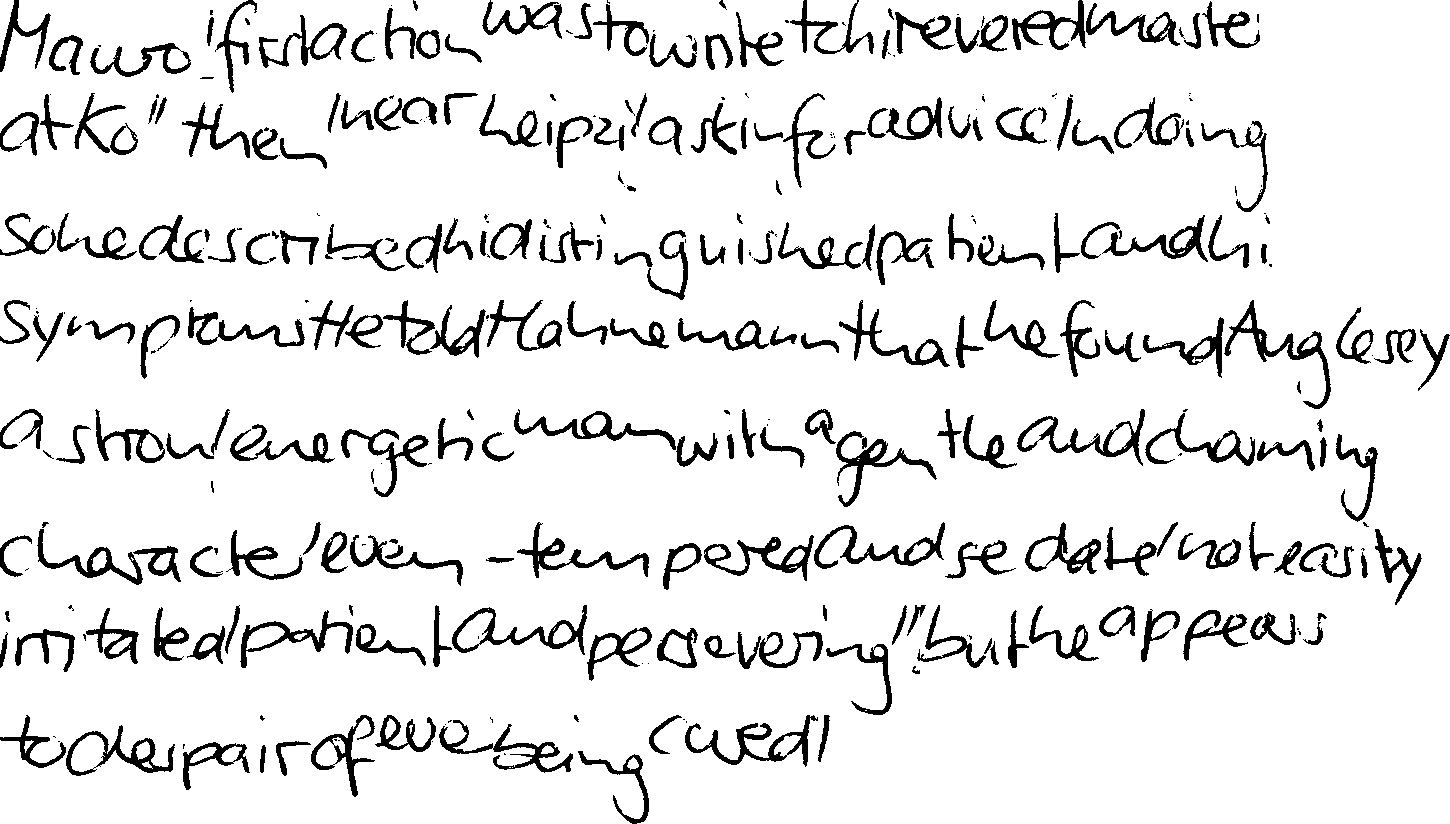 Mauro' first action was to write to hi revered maste
at Ko" then , near Leipzi, askin for advice. In doing
so he described hi distinguished patient and hi
symptoms. He told Hahnemann that he found Anglesey
a stron, energetic man with a gentle and charming
characte, even-tempered and sedate, not easily
irritated, patient and persevering", but he appears
to despair of eve being cured.